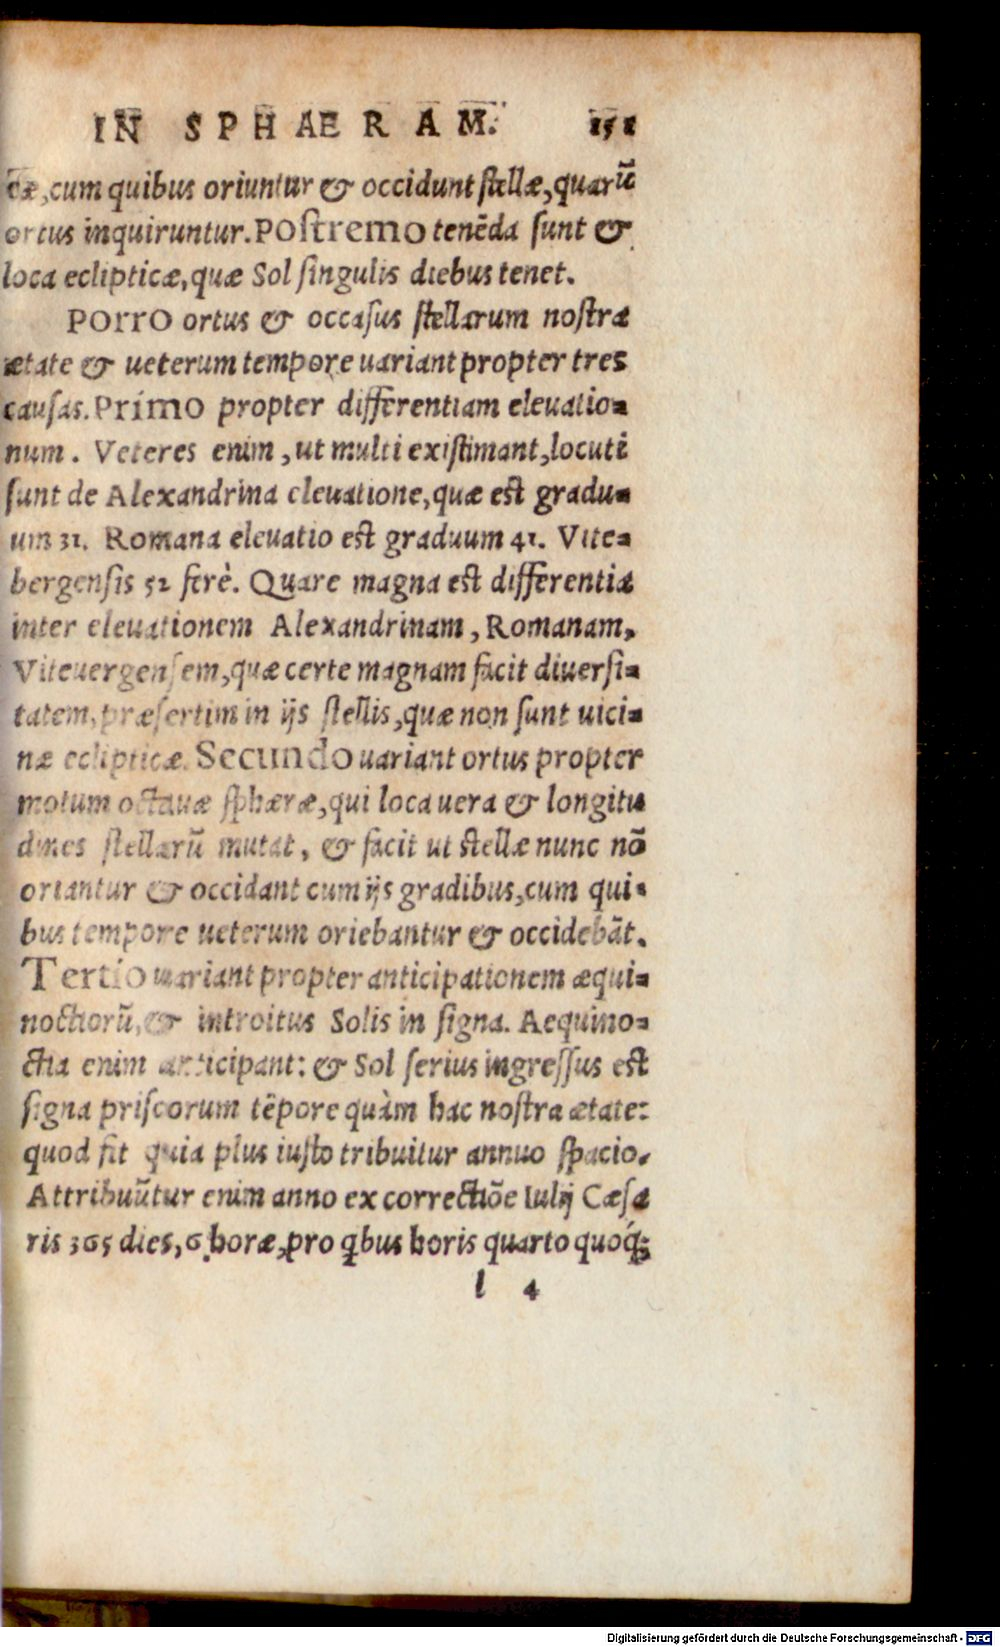 IN SPHAERAM. 151
cæ, cum quibus oriuntur & occidunt stellæ, quarũ
ortus inquiruntur. Postremo tenẽda sunt &
loca eclipticæ, quæ Sol singulis diebus tenet.
Porro ortus & occasus stellarum nostra
ætate & ueterum tempore uariant propter tres
causas. Primo propter differentiam eleuatio-
num. Veteres enim, ut multi existimant, locuti
sunt de Alexandrina eleuatione, quæ est gradu-
um 31. Romana eleuatio est graduum 41. Vite-
bergensis 52 ferè. Quare magna est differentia
inter eleuationem Alexandrinam, Romanam,
Viteuergensem, quæ certe magnam facit diuersi-
tatem, præsertim in ijs stellis, quæ non sunt uici-
næ eclipticæ. Secundo uariant ortus propter
motum octauæ sphæræ, qui loca uera & longitu
dines stellarũ mutat, & facit ut stellæ nunc nõ
oriantur & occidant cum ijs gradibus, cum qui-
bus tempore ueterum oriebantur & occidebãt.
Tertio uariant propter anticipationem æqui-
noctiorũ, & introitus Solis in signa. Aequino-
ctia enim anticipant: & Sol serius ingressus est
signa priscorum tẽpore quàm hac nostra ætate:
quod fit quia plus iusto tribuitur annuo spacio.
Attribuũtur enim anno ex correctiõe Iulij Cæsa
ris 365 dies, 6 horæ, pro qbus horis quarto quoq;
l 4
Digitalisierung gefördert durch die Deutsche Forschungsgemeinschaft - DFG